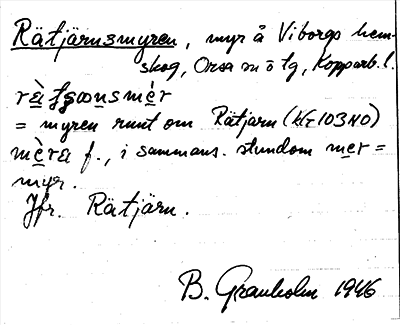 Rätjärnsmyren, myr å Viborgs hem-
skog, Orsa sn ö tg, Kopparb. l.
= myren runt om Rätjärn (kr 103 NO)
f., i sammans. stundom mer =
myr.
Jfr. Rätjärn.
B. Granholm 1946